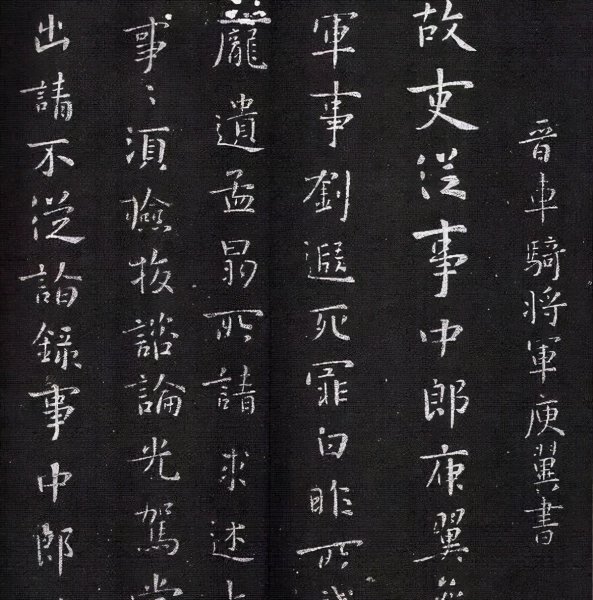 晉車騎將軍庾翼書
故吏從事中郎庾翼
軍事劉遐死罪白昨所
龐遺孟昴所請求述
事〻須檢校諮論光駕
出請不從諮錄事中郎